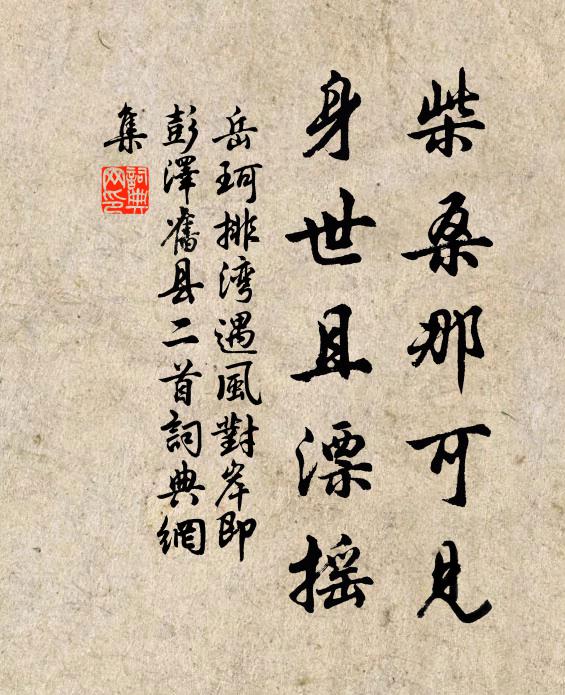 柴桑那可見
身世且漂摇
岳珂排湾遇風對岸即
彭澤舊县二首詞典網
集
詞典
网印